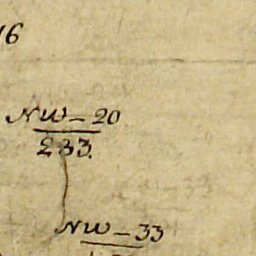 16
NW-20
233.
NW-33